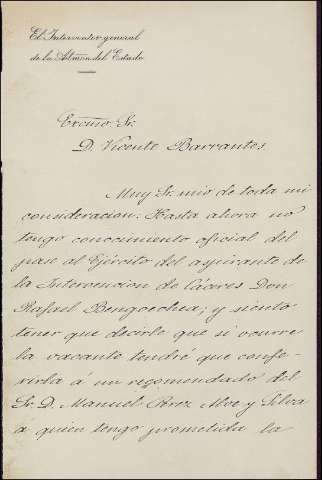 El Interventor general
de la Admón del Estado
Excmo. Sr.
D. Vicente Barrantes.
Muy Sr. mio de toda mi
consideracion: Hasta ahora no
tengo conocimiento oficial del
pase al Ejército del aspirante de
la Intervencion de Cáceres Don
Rafael Bengoechea; y siento
tener que decirle que si ocurre
la vacante tendré que confe-
rirla á un recomendado del
Sr. D. Manuel Perez y Silva
a quien tengo prometida la